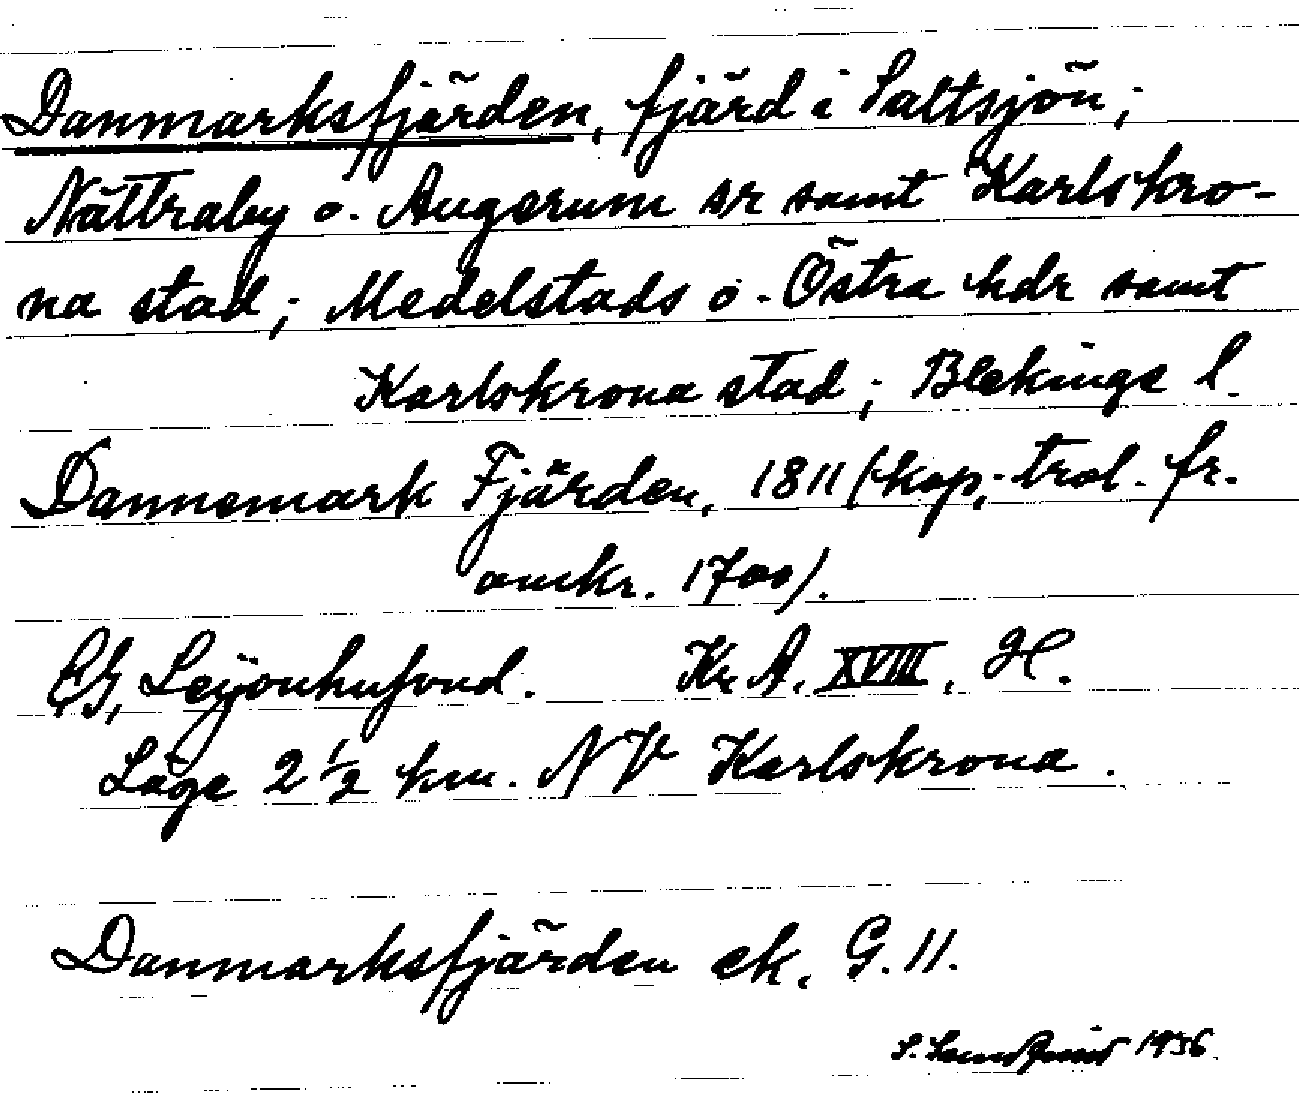 Danmarksfjärden, fjärd i Saltsjön;
Nättraby o. Augerum sr samt Karlskro-
na stad; Medelstads o. Östra hdr samt
Karlskrona stad; Blekinge l.
Dannemark Fjärden, 1811 (kop. trol. fr.
omkr. 1700).
Leijonhufvud. Kr. A. XVIII. H.
Läge 2 ½ km. NV Karlskrona.
Danmarksfjärden ek. G. 11.
S. 1936